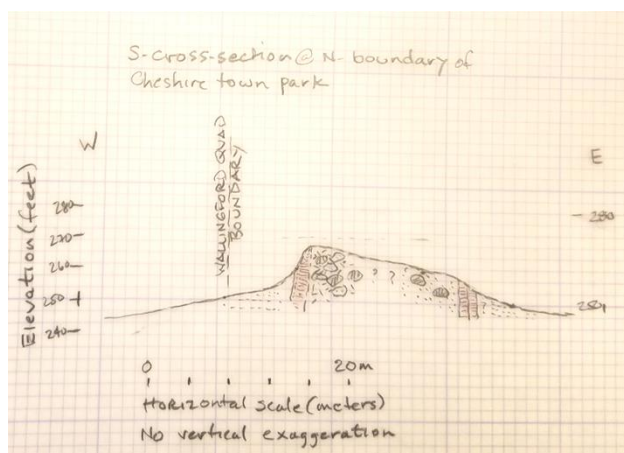 S-cross-section @ N-boundary of
Cheshire town park
W
E
WALLINGFORD QUAD
BOUNDARY
Elevation (feet)
280
270
260
250
240
280
? ?
0
20m
Horizontal scale (meters)
No vertical exaggeration